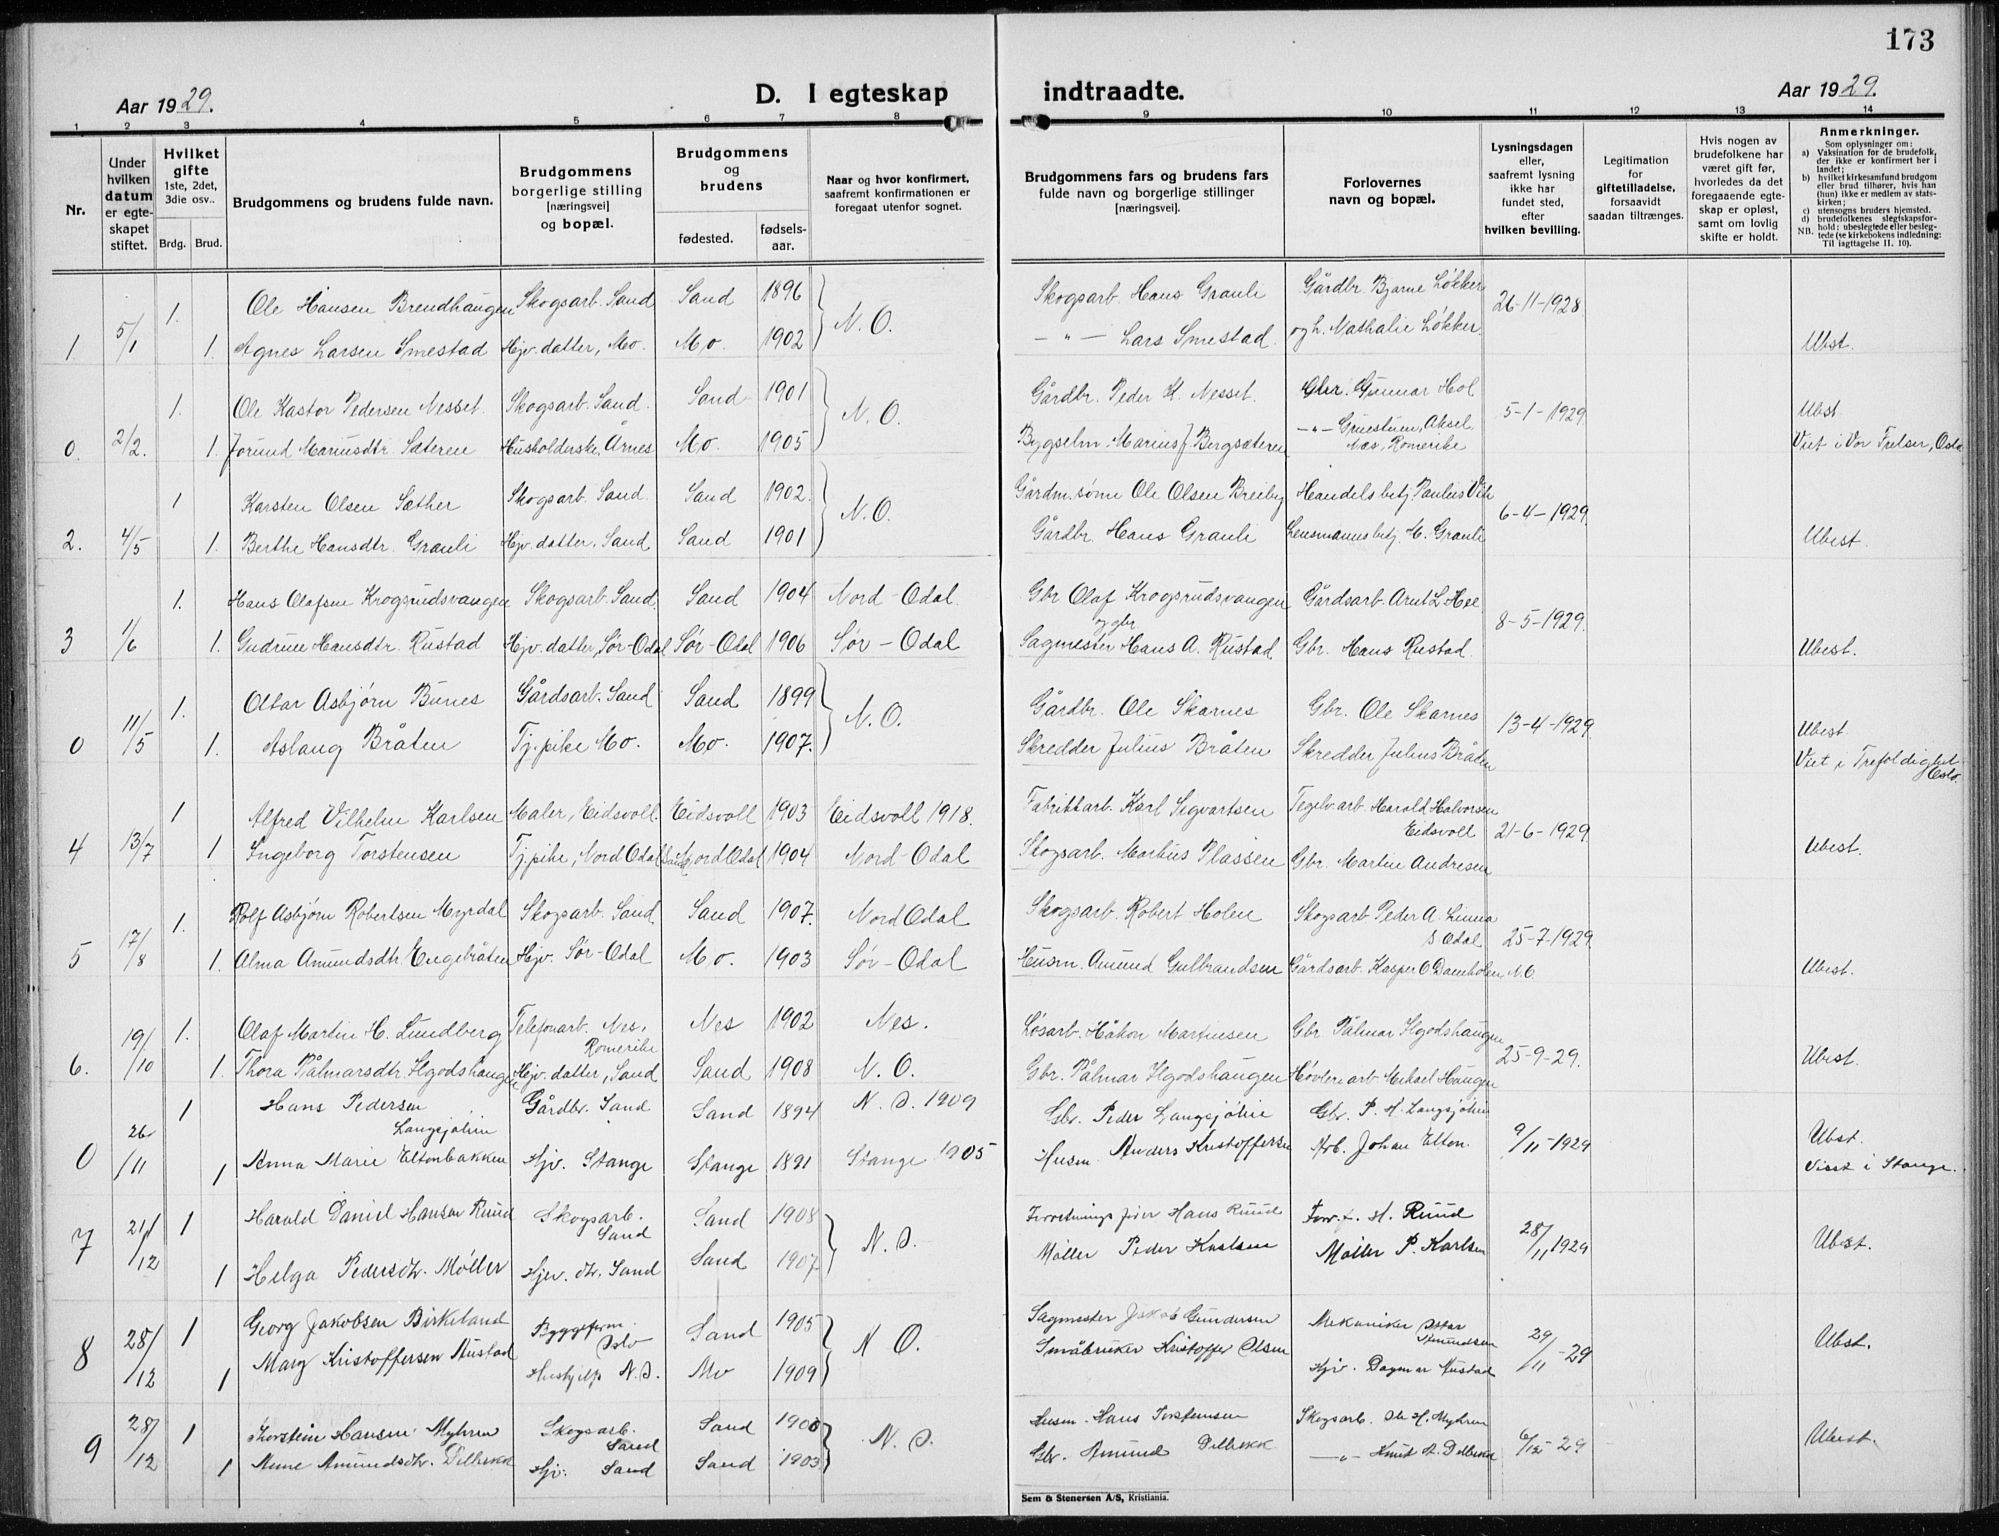 173
Aar 1929. D. I egteskap indtraadte. Aar 1929.
1 2 3 4 5 6 7 8 9 10 11 12 13 14
Nr.
Under hvilken datum er egteskapet stiftet.
Hvilket gifte 1ste, 2det, 3die osv..
Brdg. Brud.
Brudgommens og brudens fulde navn.
Brudgommens borgerlige stilling [næringsvei] og bopæl.
Brudgommens og brudens
fødested. fødsels-aar.
Naar og hvor konfirmert, saafremt konfirmationen er foregaat utenfor sognet.
Brudgommens fars og brudens fars fulde navn og borgerlige stillinger [næringsvei].
Forlovernes navn og bopæl.
Lysningsdagen eller, saafremt lysning ikke har fundet sted, efter hvilken bevilling.
Legitimation for giftetilladelse, forsaavidt saadan tiltrænges.
Hvis nogen av brudefolkene har været gift før, hvorledes da det foregaaende egteskap er opløst, samt om lovlig skifte er holdt.
Anmerkninger.
Som oplysninger om:
a) Vaksination for de brudefolk, der ikke er konfirmert her i landet;
b) hvilket kirkesamfund brudgom eller brud tilhører, hvis han (hun) ikke er medlem av statskirken;
c) utensogns bruders hjemsted.
d) brudefolkenes slegtskapsforhold: ubeslegtede eller beslegtede (se kirkebokens indledning: NB. Til iagttagelse II. 10).
1. 5/1 1. Ole Hansen Brendhaugen Skogsarb. Sand Sand 1896 N. O. Skogsarb. Hans Grauli Gårdbr. Bjarne Løkker 26-11-1928.
1. Agnes Larsen Smestad Hjv. datter, Mo. Mo. 1902 — " — Lars Smestad. og h. Nathalie Løkker. Ubst.
0. 2/2. 1. Ole Kastor Pedersen Nesset. Skogsarb. Sand. Sand 1901 N. O. Gårdbr. Peder K. Nesset. Gunnar Hol 5-1-1929. Ubst.
1. Jorund Mariusdtr. Sæteren Husholderske, Årnes Mo. 1905 Bygselm. Marius J. Bergsæteren Aksel, Næs, Romerike Viet i Vor Frelser, Oslo
2. 4/5 1 Karsten Olsen Sæther Skogsarb. Sand. Sand 1902. N. O. Gårdm. sønn Ole Olsen Breiby Handelsbetj. Paulius 6-4-1929.
1. Berthe Hansdtr. Grauli Hjv. datter, Sand Sand 1901 Gårdbr. Hans Grauli Lensmannsbetj. H. Grauli Ubest.
3 1/6 1. Hans Olafsen Krogsrudsvangen Skogsarb. Sand. Sand 1904 Nord-Odal. Gbr Olaf Krogsrudsvangen Gårdsarb. Arnt L. Hee 8-5-1929.
1. Gudrun Hansdtr. Rustad Hjv. datter, Sør-Odal Sør-Odal 1906 Sør-Odal Sagmester og gbr Hans A. Rustad Gbr. Hans Rustad. Ubest.
0 11/5 1. Ottar Asbjørn Bunes Gårdsarb. Sand Sand 1899 N. O. Gårdbr. Ole Skarnes Gbr. Ole Skarnes 13-4-1929. Ubest.
1. Aslaug Bråten Tj. pike Mo. Mo. 1907. Skredder Julius Bråten Skredder Julius Bråten Viet i Trefoldighet Oslo.
4 13/7 1 Alfred Vilhelm Karlsen Maler, Eidsvoll. Eidsvoll 1903 Eidsvoll 1918. Fabrikkarb. Karl Sigvartsen Teglv. arb. Harald Halvorsen Eidsvoll 21-6-1929.
1 Ingeborg Torstensen Tj. pike, Nord Odal Nord Odal 1904 Nord-Odal Skogsarb. Markus Plassen Gbr. Martin Andresen Ubest.
5 17/8 1. Rolf Asbjørn Robertsen Myrdal Skogsarb. Sand. Sand 1907. Nord Odal Skogsarb. Robert Holen Skogsarb Peder A. Linna S Odal 25-7-1929.
1. Alma Amundsdtr. Engebråten Hjv. Sør-Odal Mo. 1903 Sør-Odal Husm. Amund Gulbrandsen Gårdsarb. Kasper O Damholen, N.O. Ubest.
6. 19/10 1. Olaf Martin H. Lundberg Telefonarb. Nes, Romerike Nes 1902 Nes. Løsarb. Håkon Martinsen Gbr. Pålmar Hgodshaugen 25-9-29.
1. Thora Pålmarsdtr. Hgodshaugen Hjv. datter, Sand Sand 1908 N. O. Gbr. Pålmar Hgodshaugen Høvleriarb. Mikael Haugen Ubest.
0 26/11 1 Hans Pedersen Langsjøhin Gårdbr. Sand Sand 1894 N. O. 1909 Gbr. Peder Langsjøhin Gbr. P. H. Langsjøhin 9/11-1929 Ubst.
1 Anna Marie Eltonbakken Hjv. Stange Stange 1891 Stange 1905 Husm. Anders Kristoffersen Arb. Johan Elton. Viet i Stange.
7 21/12 1 Harald Daniel Hansen Ruud Skogsarb. Sand Sand 1908 N. O. Forretningsfører Hans Ruud Forr. f. H. Ruud 28/11 1929
1 Helga Pedersdtr. Møller Hjv. dtr. Sand Sand 1907 Møller Peder Karlsen Møller P. Karlsen Ubest.
8 28/12 1 Georg Jakobsen Birkeland Byggeform. Oslo Sand 1905 N O. Sagmester Jakob Gundersen Mekaniker Oskar Amundsen 29/11-29
1 Marg Kristoffersen Austad Hushjelp N. O. Mo 1909 Småbruker Kristoffer Olsen Hjv. Dagmar Austad Ubst.
9 28/12 1 Thorstein Hansen Myhren Skogsarb. Sand Sand 1900 N. O. Husm. Hans Torstensen Skogsarb. Ole H. Myhren 6/12-29
1 Anne Amundsdtr. Delbekk Hjv. Sand Sand 1903 Gbr. Amund Delbekk — " — Knut A. Delbekk Ubest.
Sem & Stenersen A/S, Kristiania.